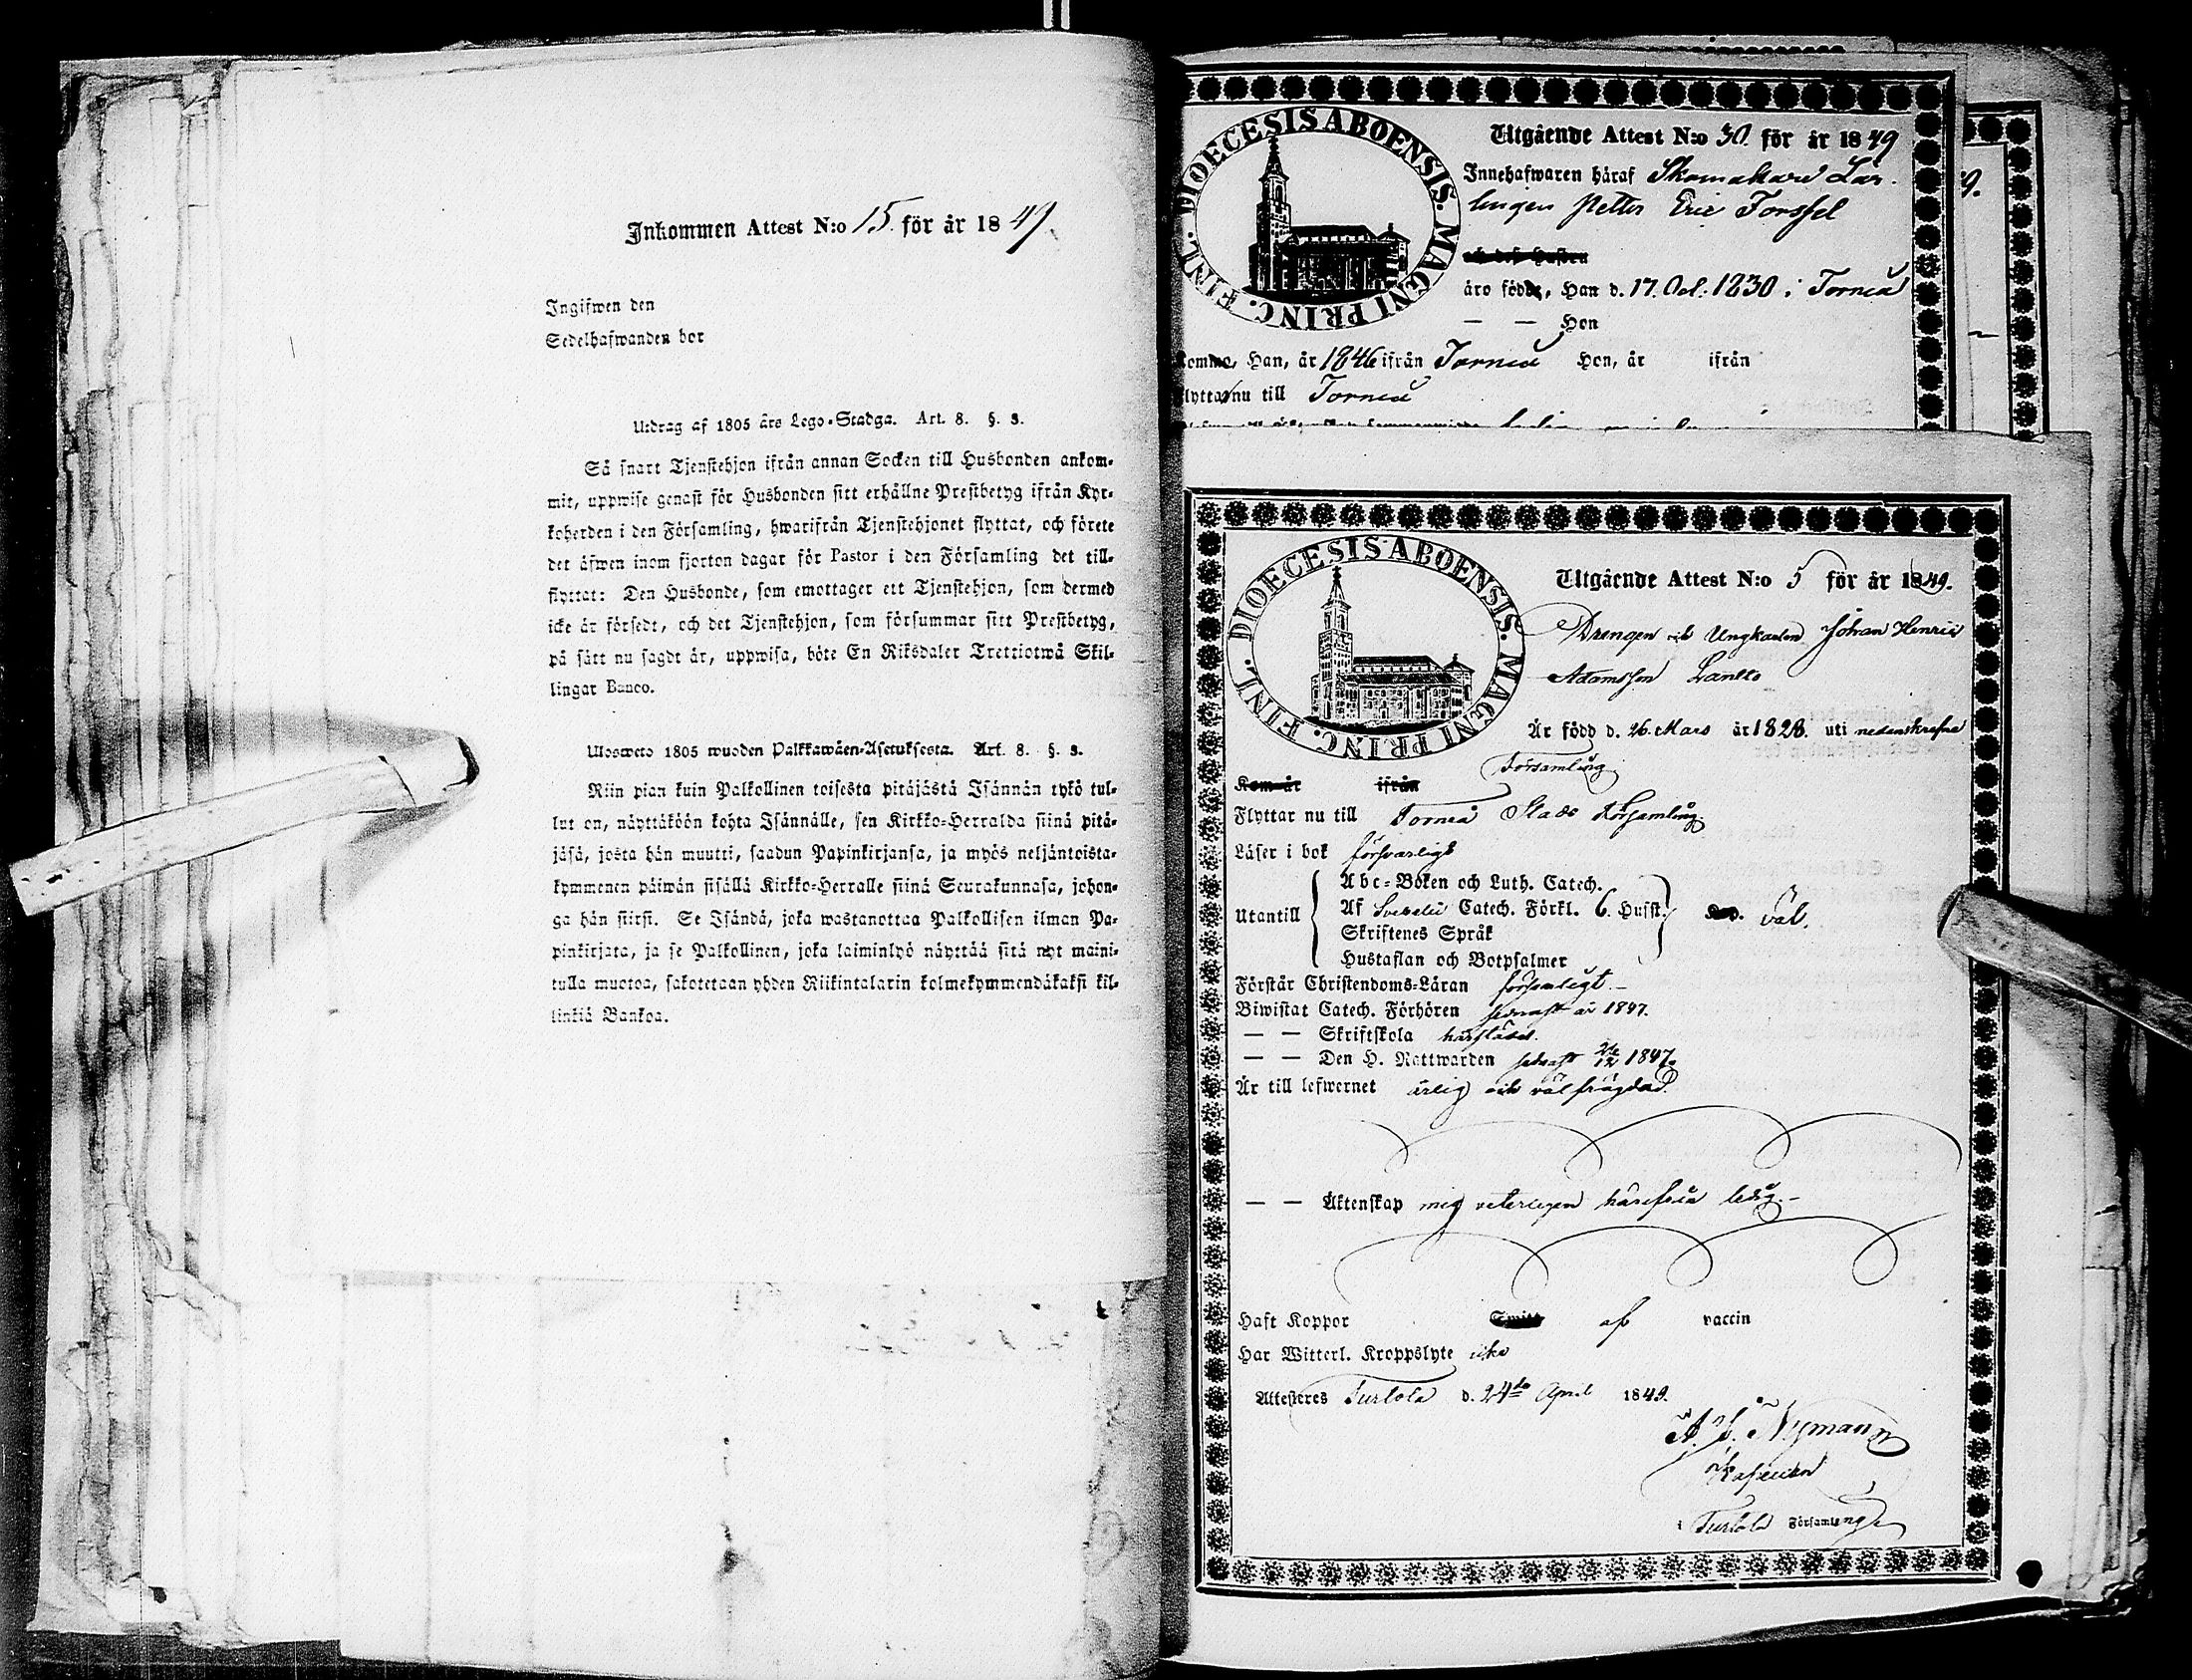 Inkommen Attest N:o 15. för år 1849.
Ingifwen den
Sedelhafwanden bor
Utdrag af 1805 års Lego-Stadga. Art. 8. §. 3.
Så snart Tjenstehjon ifrån annan Socken till Husbonden ankom-
mit, uppwise genast för Husbonden sitt erhållne Prestbetyg ifrån Kyr-
koherden i den Församling, hwarifrån Tjenstehjonet flyttat, och förete
det äfwen inom fjorton dagar för Pastor i den Församling det till-
flyttat: Den Husbonde, som emottager ett Tjenstehjon, som dermed
icke är försedt, och det Tjenstehjon, som försummar sitt Prestbetyg,
på sätt nu sagdt är, uppwisa, böte En Riksdaler Trettiotwå Skil-
lingar Banco.
Ulosweto 1805 wuoden Palkkawäen-Asetuksesta. Art. 8. §. 3.
Niin pian kuin Palkollinen toisesta pitäjästä Isännän tykö tul-
lut on, näyttäköön kohta Isännälle, sen Kirkko-Herralda siinä pitä-
jäsä, josta hän muutti, saadun Papinkirjansa, ja myös neljäntoista-
kymmenen päiwän sisällä Kirkko-Herralle siinä Seurakunnasa, johon-
ga hän siirsi. Se Isändä, joka wastanottaa Palkollisen ilman Pa-
pinkirjata, ja se Palkollinen, joka laiminlyö näyttää sitä nyt maini-
tulla muotoa, sakotetaan yhden Riikintalarin kolmekymmendäkaksi kil-
linkiä Bankoa.
DIOECESIS ABOENSIS. MAGNI PRINC. FINL.
Utgående Attest N:o 30. för år 1849
Innehafwaren häraf Skomakare Lär-
lingen Petter Eric Forssel
och dess Hustru
äro födde, Han d. 17. Oct. 1830 i Torneå
— — Hon
Komme, Han, år 1846 ifrån Torneå Hon, år ifrån
Flyttar nu till Torneå
DIOECESIS ABOENSIS. MAGNI PRINC. FINL.
Utgående Attest N:o 5 för år 1849.
Drengen och Ungkarlen Johan Henric
Adamsson Lantto
Är född d. 26. Mars år 1828. uti nedanskrefne
Församling
Kom år ifrån
Flyttar nu till Torneå Stads Församling
Läser i bok försvarligt
Utantill
Abc-Boken och Luth. Catech.
Af Svebelii Catech. Förkl. 6. Husst.
Skriftenes Språk
Hustaflan och Botpsalmer
väl.
Förstår Christendoms-Läran försvarligt.—
Biwistat Catech. Förhören sednast år 1847.
— — Skriftskola
— — Den H. Nattwarden sednast 26/12 1847.
Är till lefwernet ärlig och välfrägdad.
— — Äktenskap mig veterligen hinderfri ledig.—
Haft Koppor af vaccin
Har Witterl. Kroppslyte icke
Attesteres Turtola d. 24de April 1849.
Nymann
i Turtola Församling